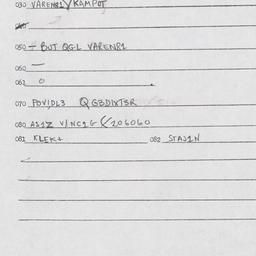 030 VARENR1 Y KAMPOT
050 - BUT QGL VARENR1
060 —
061 0
070 POV/DL3 QGBDIXTSR
080 AS1Z V/NC1G (206060
081 KLEK+ 082 STAJ1N